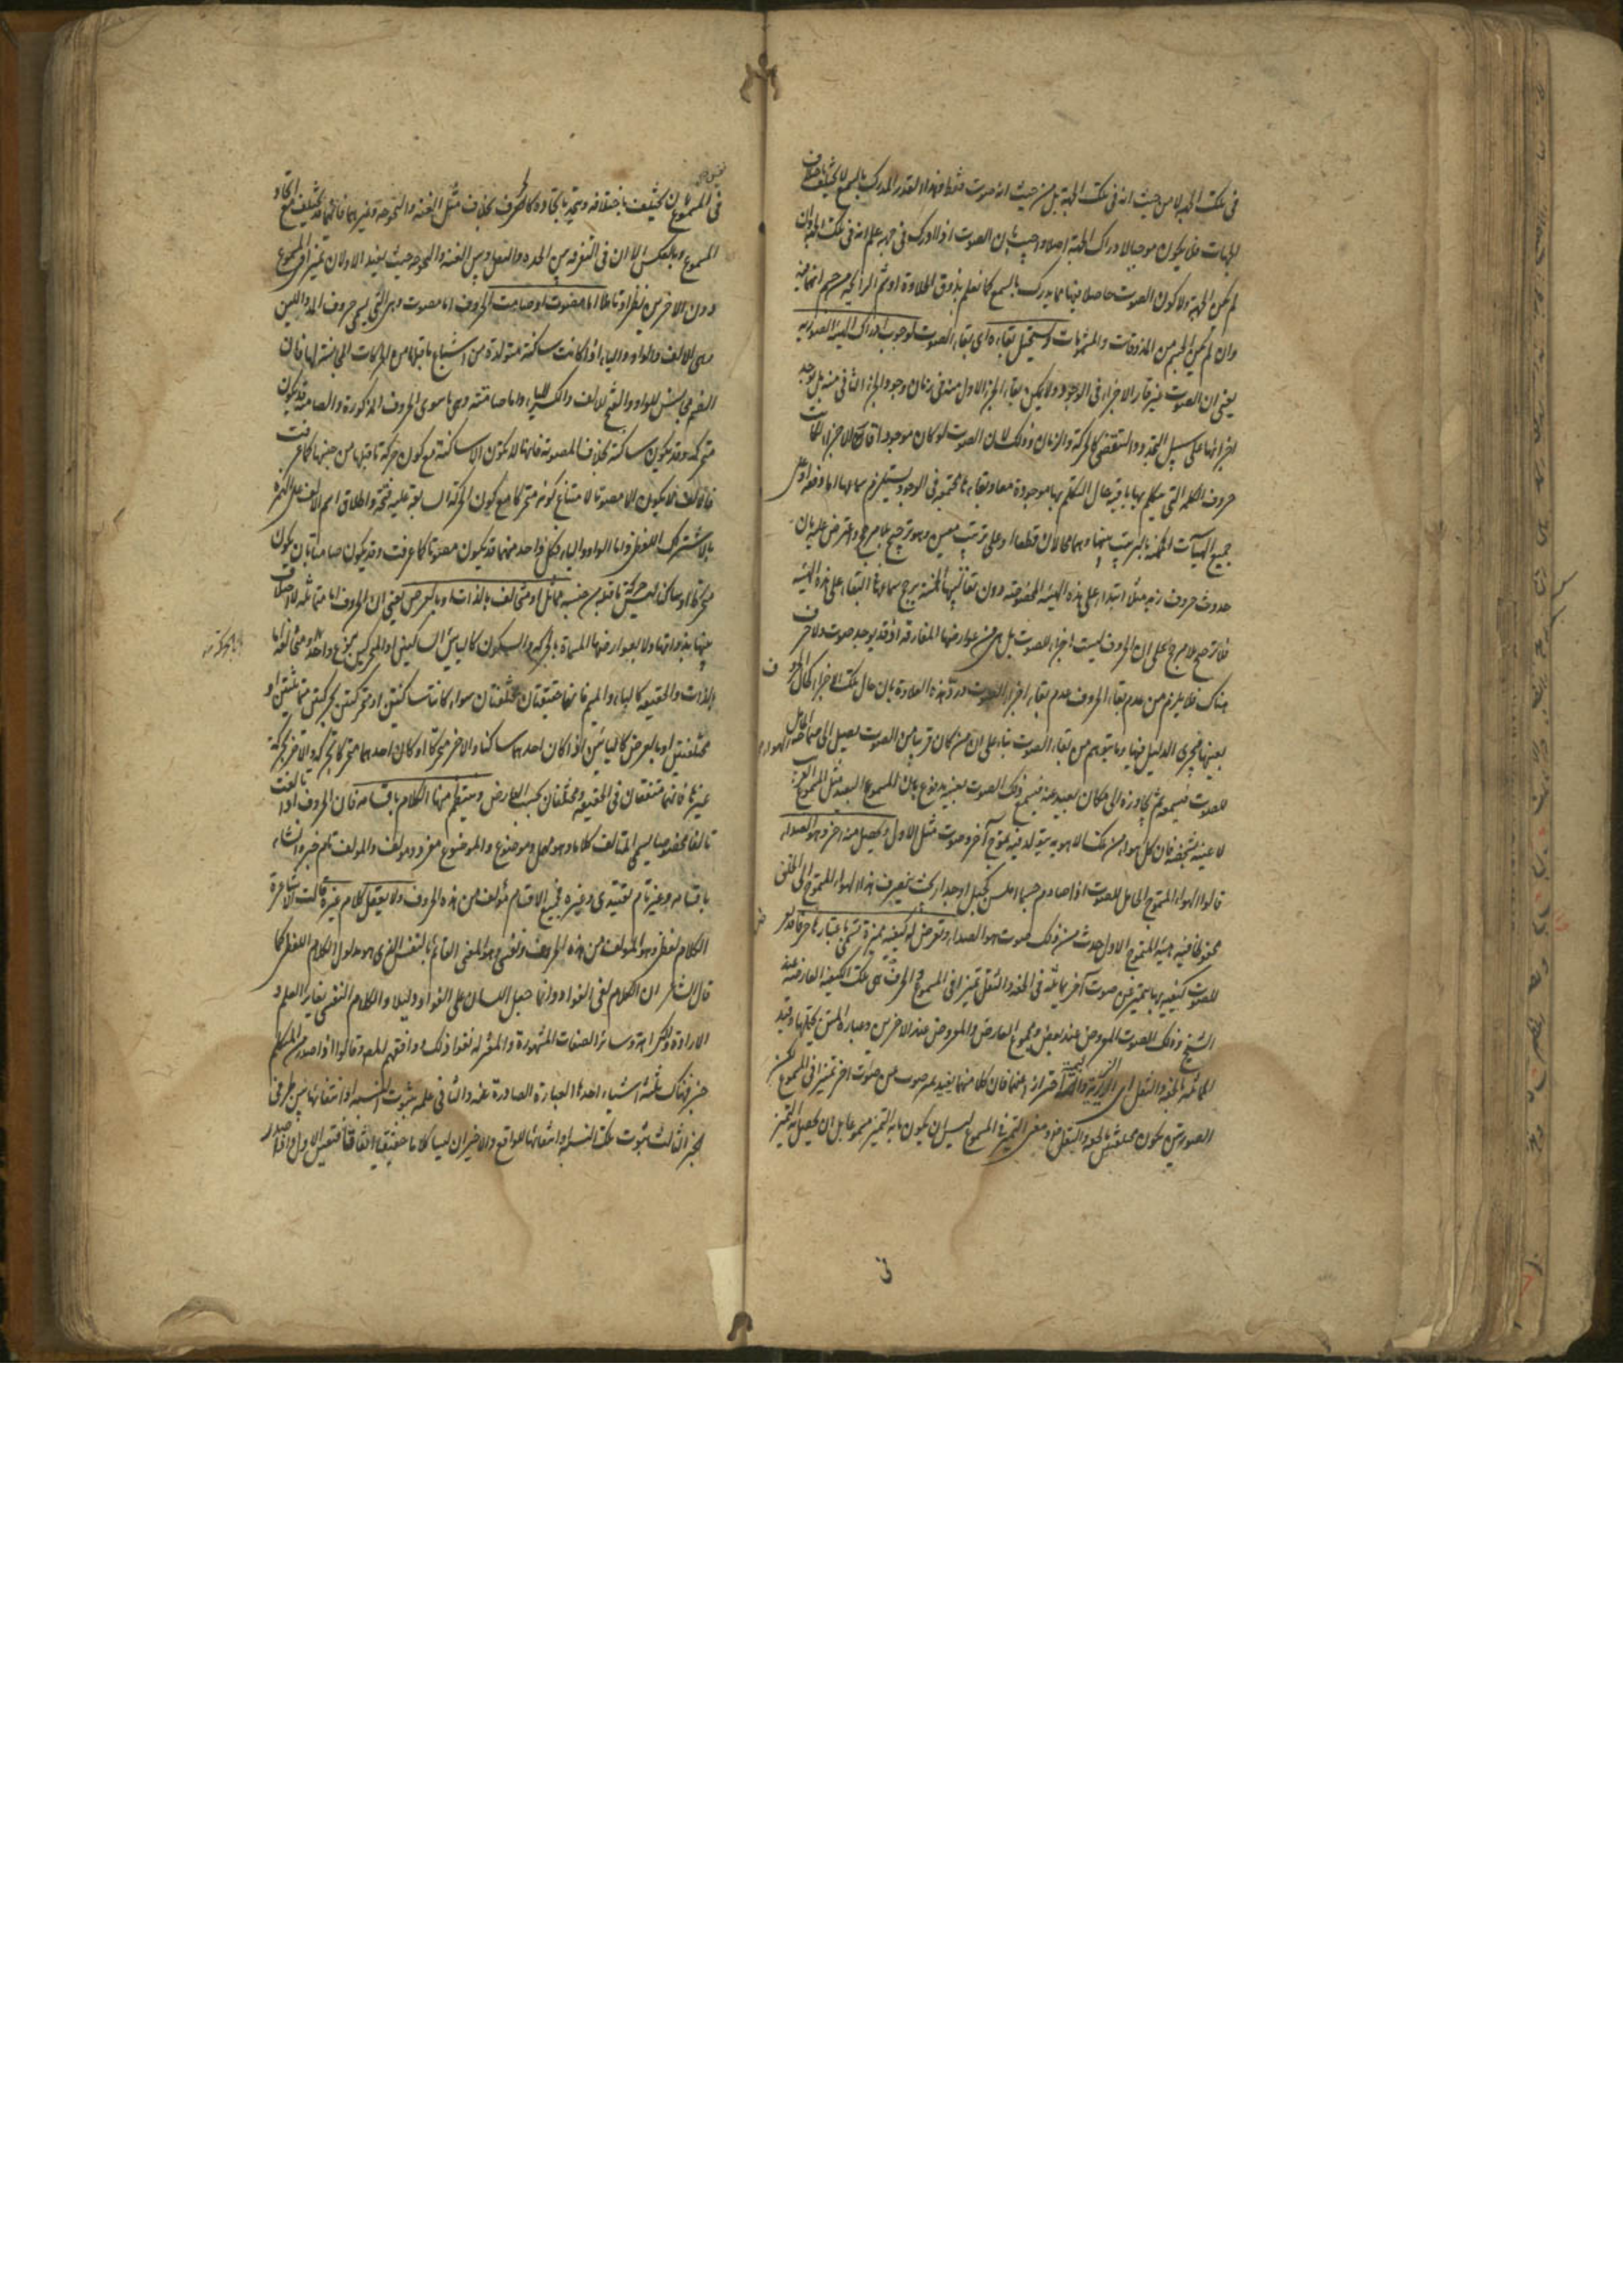 في تلك الجهة لا من حيث انه في تلك الجهة بل من حيث انه صوت فقط وهذا القدر المدرك بالسمع لا يختلف باختلاف
الجهات فلا يكون موجبا لادراك الجهة اصلا واجيب بان الصوت اذا ادرك في جهة علم انه في تلك الجهة وان
لم تكن الجهة ولا كون الصوت حاصلا فيها مما يدرك بالسمع كما نعلم بذوق الحلاوة او شم الرائحة من جسم انها فيه
وان لم يكن الجسم من المذوقات والمشمومات ويستحيل بقاءه اى بقاء الصوت لوجوب ادراك الهيئة الصورية
يعني ان الصوت غير قار الاجزاء في الوجود ولا يمكن بقاء الجزء الاول منه في زمان وجود الجزء الثاني منه بل يوجد
اجزائها على سبيل التجدد والتقضي كالحركة والزمان وذلك لان الصوت لو كان موجودا قار الاجزاء لكانت
حروف الكلمة التي يتكلم بها باقية حال التكلم بها موجودة معا وبقاءها مجتمعة في الوجود يستلزم سماعها اما دفعة او على
جميع الهيآت الممكنة بالترتيب بينها وهما محالان قطعا او على ترتيب معين وهو ترجيح بلا مرجح واعترض عليه بان
حدوث حروف زيد مثلا ابتداء على هذه الهيئة المخصوصة دون تقاليبها الخمسة يرجح سماعها البقاء على هذه الهيئة
فلا ترجيح بلا مرجح على ان الحروف ليست اجزاء للصوت بل هى من عوارضها المفارقة اذ قد يوجد صوت ولا حرف
هناك فلا يلزم من عدم بقاء الحروف عدم بقاء اجزاء الصوت ورد هذه العلاوة بان حال تلك الاجزاء كحال الحروف
بعينها فيجرى الدليل فيها وما يتوهم من بقاء الصوت بناء على ان من كان قريبا من الصوت يصل الى صماخه الهواء الحامل
للصوت فيسمعه ثم يتجاوزه الى مكان بعيد عنه فيسمع ذلك الصوت بعينه مدفوع بان المسموع البعيد مثل المسموع القريب
لا عينه بشخصه فان كل هواء من تلك الاهوية يتولد فيه تموج آخر وصوت مثل الاول ويحصل منه اخر وهو الصداء
قالوا الهواء المتموج الحامل للصوت اذا صادم جسما املس كجبل او جدار بحيث ينصرف هذا الهواء المتموج الى الخلف
محفوظا فيه هيئة المتموج الاول حدث من ذلك صوت هو الصداء وتعرض له كيفية مميزة تسمى باعتبارها حرفا قد تعرض
للصوت كيفية بها يتميز عن صوت آخر يماثله في الحدة والثقل تميزا في المسموع والحرف هى تلك الكيفية العارضة عند
الشيخ وذلك الصوت المعروض عند بعض ومجموع العارض والمعروض عند الاخرين وعبارة المتن يحتملها وقيد
المماثلة بالحدة والثقل اى الزيرية والبمية احترازا عنهما فان كلا منهما يفيد تميز صوت عن صوت اخر تميزا في المسموع لكن
الصوتين يكون مختلفين بالحدة والثقل منه ومعنى التميز في المسموع ليس ان يكون ما به التميز مسموعا بل ان يحصل به التميز
في
في المسموع بان يختلف باختلافه ويتحد باتحاده كالحرف بخلاف مثل الغنة والبحوحة وغيرهما فانها قد تختلف مع اتحاد
المسموع وبالعكس الا ان في التفرقة بين الحدة والثقل وبين الغنة والبحوحة حيث يفيد الاولان تميزا في المسموع
دون الاخرين نظرا وتاملا اما مصوت او صامت الحروف اما مصوت وهى التي تسمى حروف المد واللين
وهى الالف والواو والياء اذا كانت ساكنة متولدة من اشباع ما قبلها من الحركات المجانسة لها فان
الضم مجانس للواو والفتح للالف والكسر للياء واما صامتة وهى ما سوى الحروف المذكورة والصامتة قد يكون
متحركة وقد يكون ساكنة بخلاف المصوتة فانها لا تكون الا ساكنة مع كون حركة ما قبلها من جنسها كما عرفت
فالالف لا يكون الا مصوتا لامتناع كونه متحركا مع كون الحركة السابقة عليه فتحة واطلاق اسم الالف على الهمزة
بالاشتراك اللفظي واما الواو والياء فكل واحد منهما قد يكون مصوتا كما عرفت وقد يكون صامتا بان يكون
متحركا او ساكنا ليس حركة ما قبله من جنسه متماثل او متخالف بالذات او بالعرض يعني ان الحروف اما متماثلة لا اختلاف
بينها بذواتها ولا بعوارضها المسماة بالحركة والسكون كالبائين الساكنين او المتحركين بنوع واحد واما متخالفة اما
بالذات والحقيقة كالباء والميم فانهما حقيقتان مختلفتان سواء كانتا ساكنتين او متحركتين بحركتين متماثلتين او
مختلفتين او بالعرض كالبائين اذا كان احدهما ساكنا والاخر متحركا او كان احدهما متحركا بحركة والاخر بحركة
غيرها فانهما متفقان في الحقيقة ومختلفان بحسب العارض وينتظم منها الكلام باقسامه فان الحروف اذا تالفت
تالفا مخصوصا يسمى المتالف كلاما وهو مهمل وموضوع والموضوع مفرد ومولف والمولف تام خبر وانشاء
باقسامه وغير تام تقييدى وغيره فجميع الاقسام مؤلف من هذه الحروف ولا يعقل كلام غيره قالت الاشاعرة
الكلام لفظي وهو المولف من هذه الحروف ونفسي وهو المعنى القائم بالنفس الذى هو مدلول الكلام اللفظي كما
قال الشاعر ان الكلام لفي الفؤاد وانما جعل اللسان على الفؤاد دليلا والكلام النفسي يغاير العلم و
الارادة والكراهة وسائر الصفات المشهورة والمعتزلة نفوا ذلك ووافقهم المص وقالوا اذا صدر من المتكلم
خبر فهناك ثلثة اشياء احدها العبارة الصادرة عنه والثاني علمه بثبوت النسبة او انتفائها بين طرفي
الخبر الثالث ثبوت تلك النسبة او انتفائها في الواقع والاخيران ليسا كلاما حقيقيا اتفاقا فتعين الاول واذا صدر